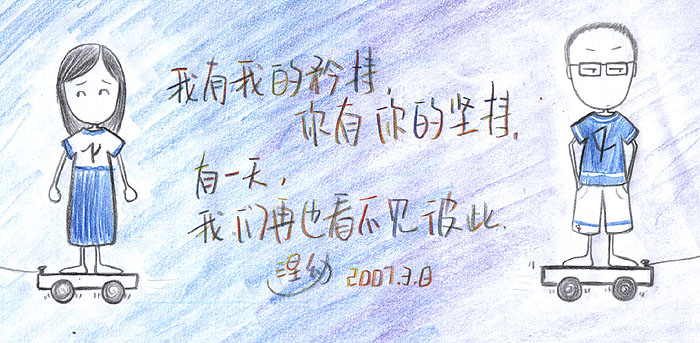 我有我的矜持,
你有你的坚持.
有一天,
我们再也看不见彼此.
2007.3.8